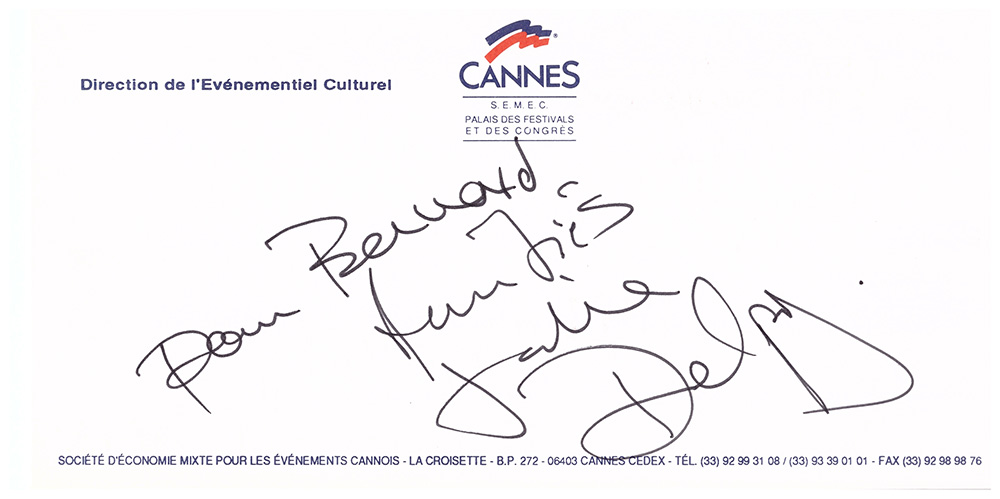 CANNES
Direction de l'Evénementiel Culturel
S.E.M.E.C.
PALAIS DES FESTIVALS
ET DES CONGRÈS
pour Bernard
Amitiés
Julie
Delpy
SOCIÉTÉ D'ÉCONOMIE MIXTE POUR LES ÉVÉNEMENTS CANNOIS - LA CROISETTE - B.P. 272 - 06403 CANNES CEDEX - TÉL. (33) 92 99 31 08 / (33) 93 39 01 01 - FAX (33) 92 98 98 76